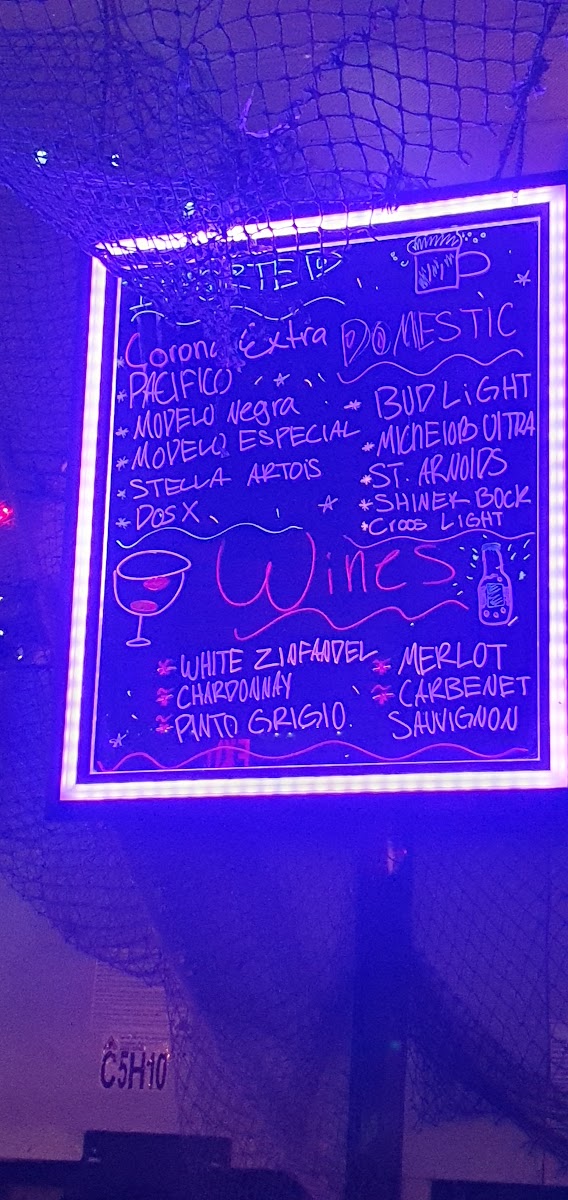 Corona Extra
* PACIFICO
* MODELO Negra
* MODELO ESPECIAL
* STELLA ARTOIS
* DOS X
DOMESTIC
* BUD LIGHT
* MICHELOB UlTRA
* ST. ARNOlDS
* SHINER BOCK
* CROOS LIGHT
Wines
* WHITE ZINFANDEL
* CHARDONNAY
* PINTO GRIGIO
* MERLOT
* CARBENET
SAUVIGNON
C5H10